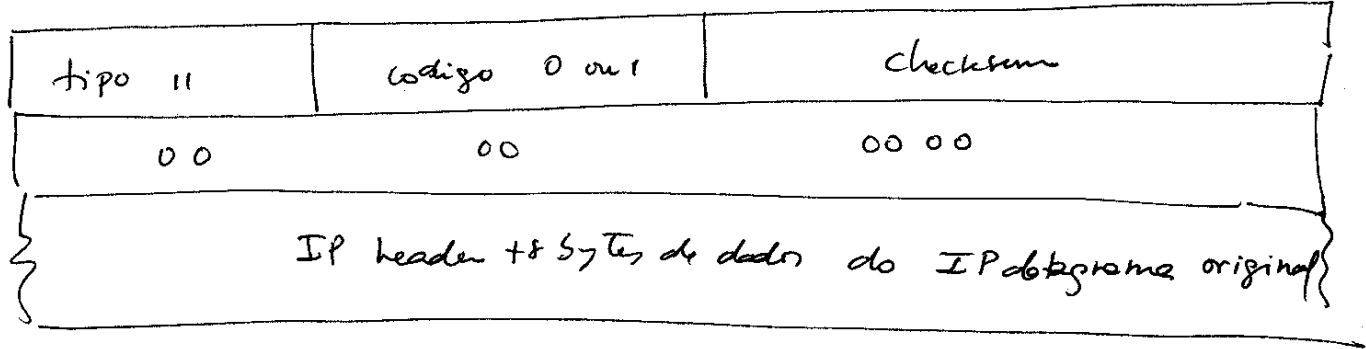 tipo 11 codigo 0 ou 1 checksum
00 00 00 00
IP header +8 bytes de dados do IP datagrama original